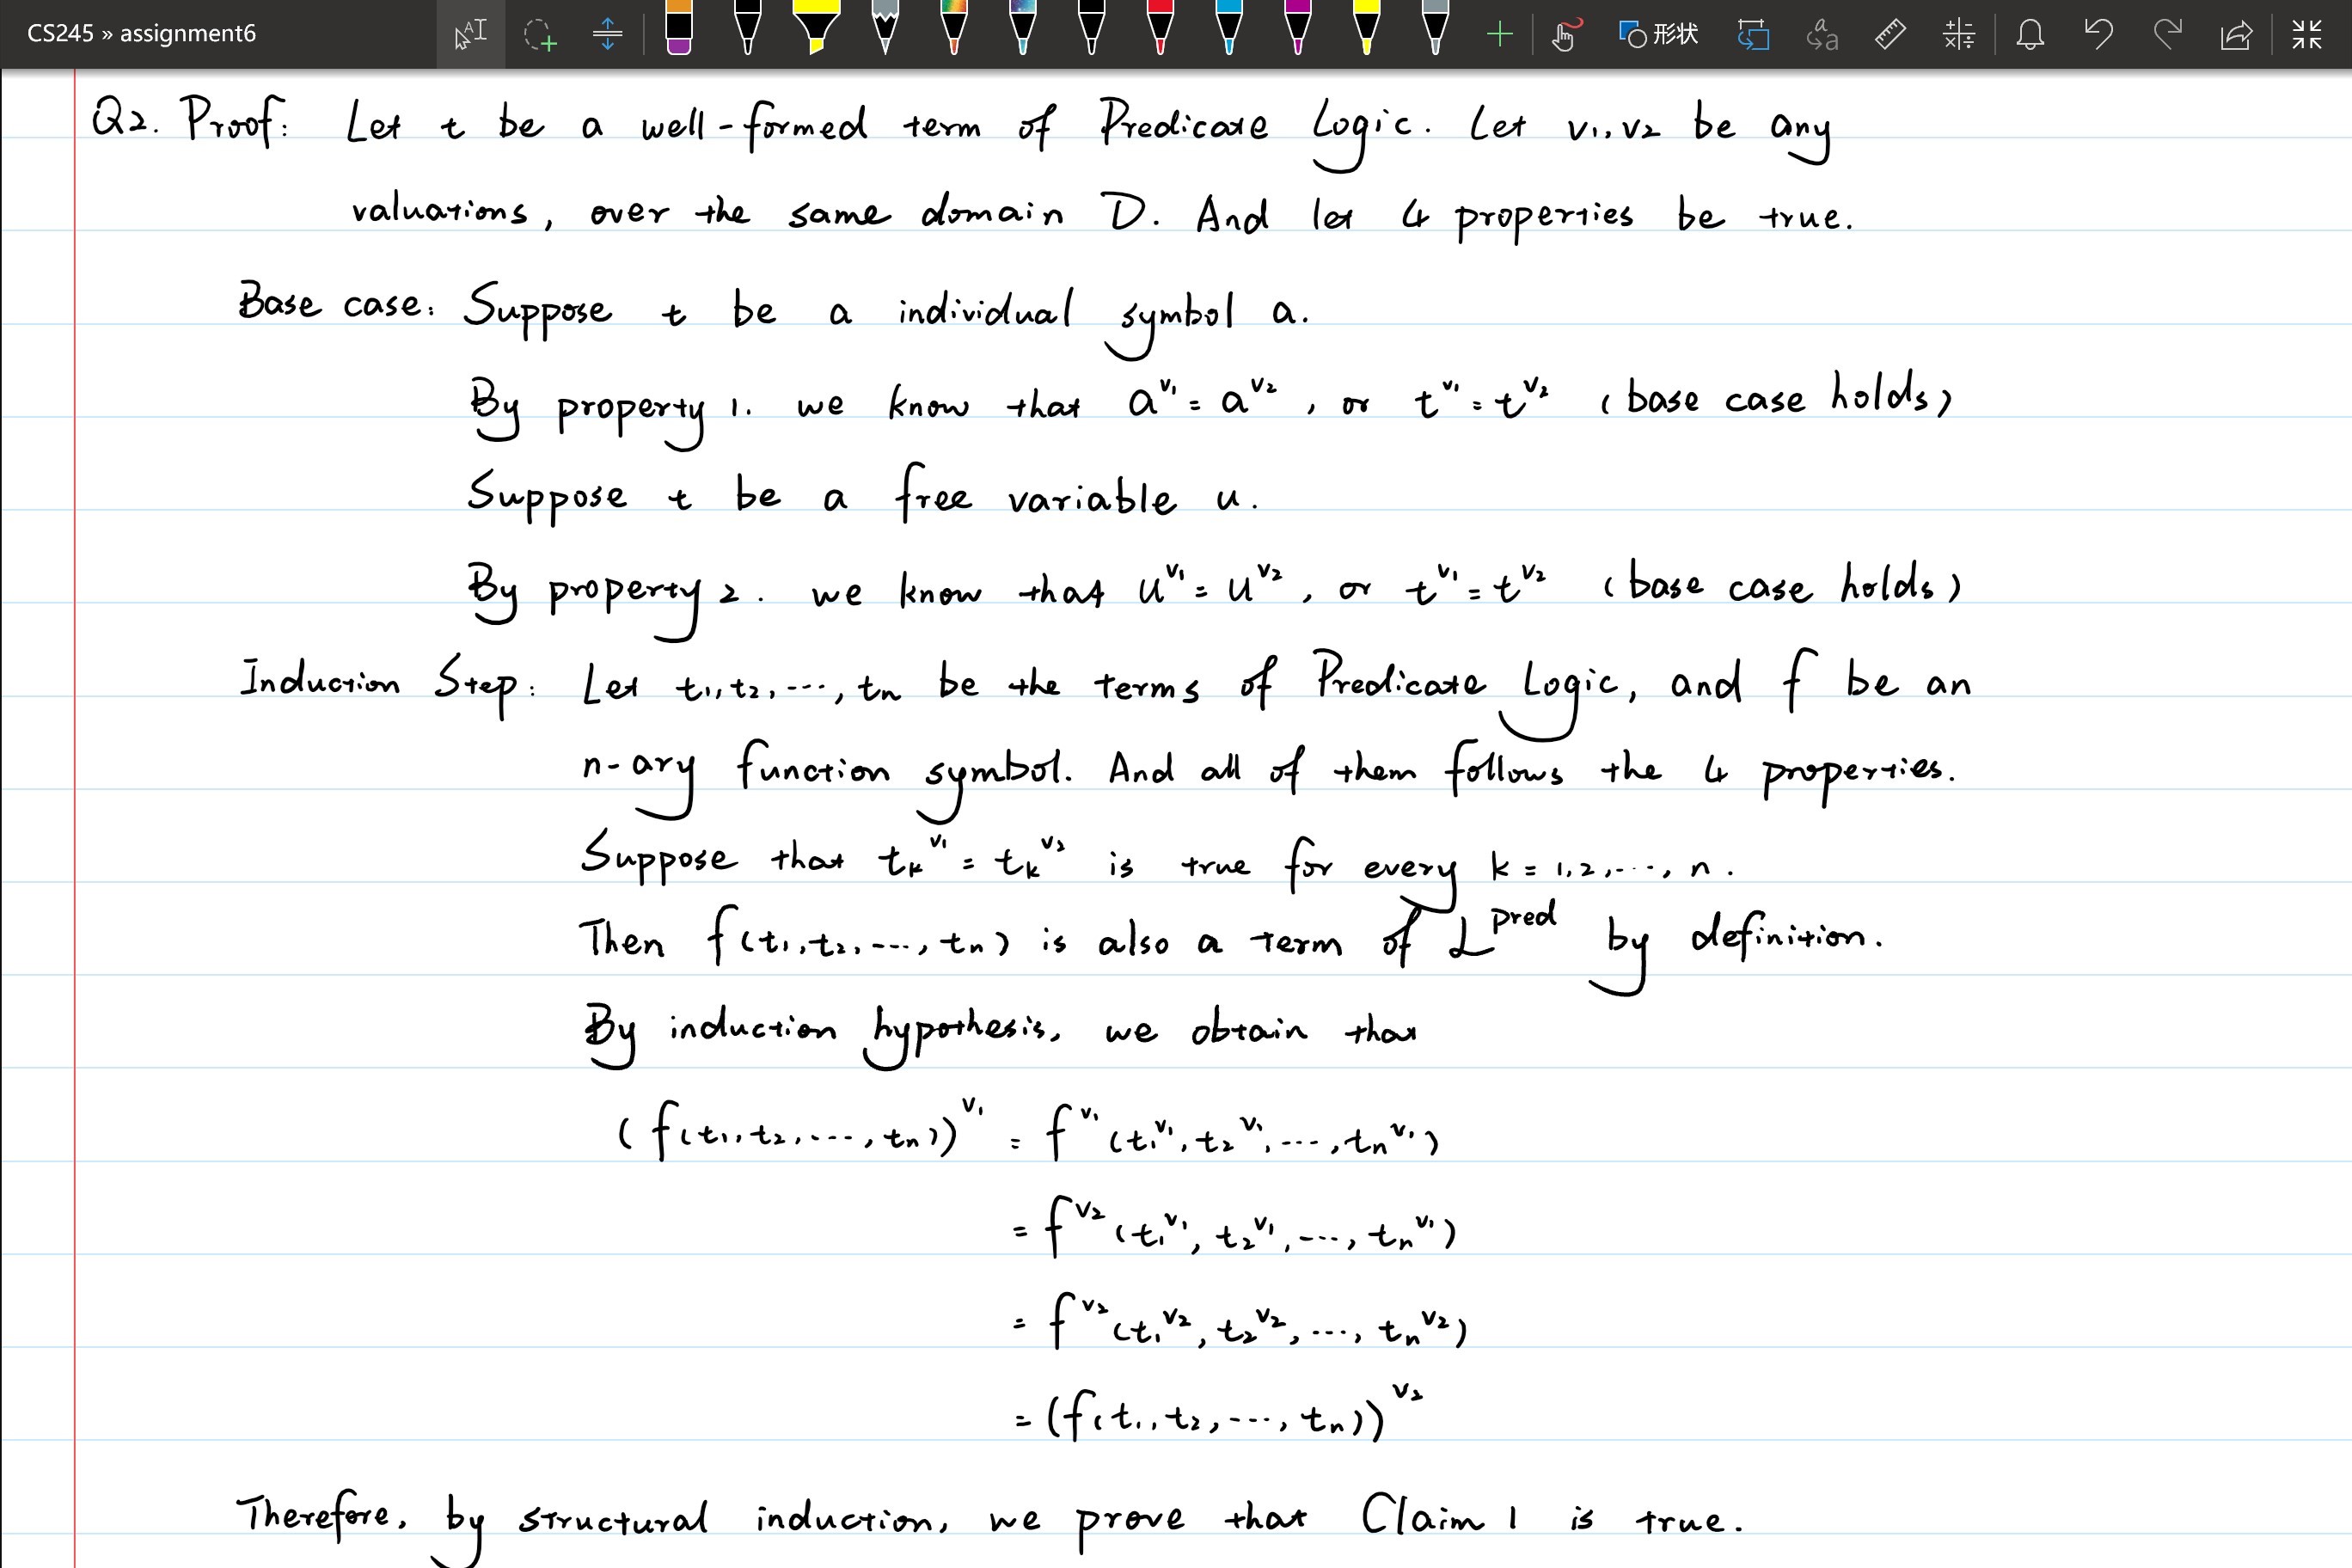 CS245 » assignment6
形状
Q2. Proof: Let t be a well-formed term of Predicate Logic. Let v₁, v₂ be any
valuations, over the same domain D. And let 4 properties be true.
Base case: Suppose t be a individual symbol a.
By property 1. we know that a^v₁ = a^v₂, or t^v₁ = t^v₂ (base case holds)
Suppose t be a free variable u.
By property 2. we know that u^v₁ = u^v₂, or t^v₁ = t^v₂ (base case holds)
Induction Step: Let t₁, t₂, ..., tₙ be the terms of Predicate Logic, and f be an
n-ary function symbol. And all of them follows the 4 properties.
Suppose that tₖ^v₁ = tₖ^v₂ is true for every k = 1, 2, ..., n.
Then f(t₁, t₂, ..., tₙ) is also a term of L^pred by definition.
By induction hypothesis, we obtain that
(f(t₁, t₂, ..., tₙ))^v₁ = f^v₁(t₁^v₁, t₂^v₁, ..., tₙ^v₁)
= f^v₂(t₁^v₁, t₂^v₁, ..., tₙ^v₁)
= f^v₂(t₁^v₂, t₂^v₂, ..., tₙ^v₂)
= (f(t₁, t₂, ..., tₙ))^v₂
Therefore, by structural induction, we prove that Claim 1 is true.